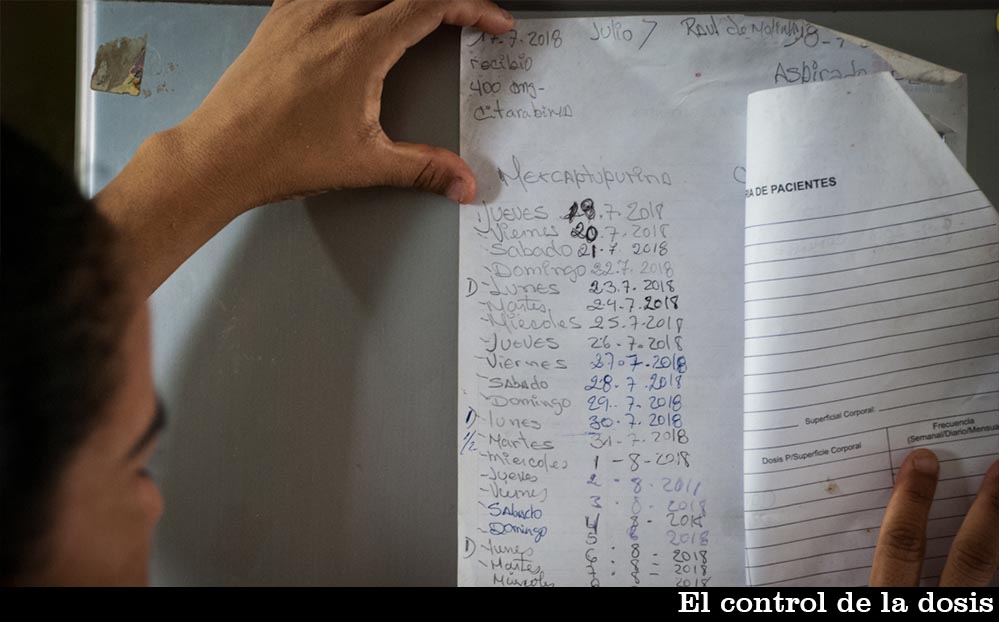 17.7.2018 Julio 7 Raul de
recibio Aspirado
400 mg-
Citarabina
Mercaptupurina
Jueves 19.7.2018
-Viernes 20.7.2018
-Sabado 21.7.2018
-Domingo 22.7.2018
D -Lunes 23.7.2018
-Martes, 24.7.2018
-Miecoles 25.7.2018
-Jueves 26.7.2018
-Viernes 27.7.2018
-Sabado 28.7.2018
-Domingo 29.7.2018
D -Lunes 30.7.2018
1/2 -Martes 31-7.2018
-Miercoles 1-8-2018
-Jueves 2.8.2018
-Viernes 3.8.2018
-Sabado 4 8-2018
-Domingo 5 8 2018
D -Lunes 6:8-2018
-Martes 7:8=2018
-Miercoles 8 2018
DE PACIENTES
Superficial Corporal:
Dosis P/Superficie Corporal
Frecuencia
(Semanal/Diario/Mensua
El control de la dosis